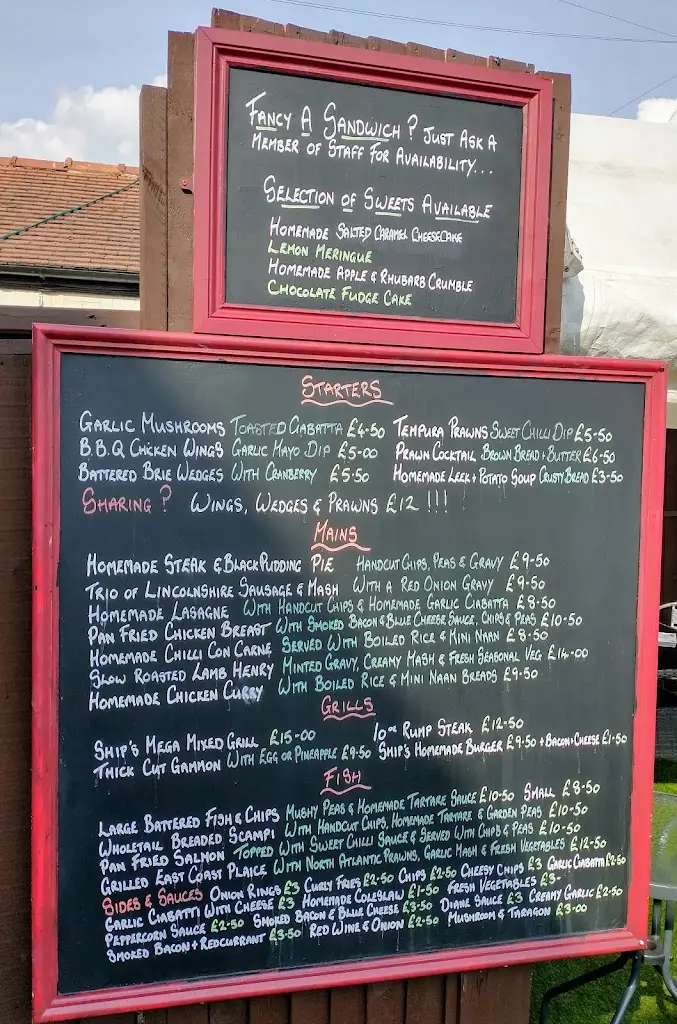 FANCY A SANDWICH? JUST ASK A
MEMBER OF STAFF FOR AVAILABILITY...
SELECTION OF SWEETS AVAILABLE
HOMEMADE SALTED CARAMEL CHEESECAKE
LEMON MERINGUE
HOMEMADE APPLE & RHUBARB CRUMBLE
CHOCOLATE FUDGE CAKE
STARTERS
GARLIC MUSHROOMS TOASTED CIABATTA £4-50 TEMPURA PRAWNS SWEET CHILLI DIP £5-50
B.B.Q CHICKEN WINGS GARLIC MAYO DIP £5-00 PRAWN COCKTAIL BROWN BREAD + BUTTER £6-50
BATTERED BRIE WEDGES WITH CRANBERRY £5-50 HOMEMADE LEEK + POTATO SOUP CRUSTY BREAD £3-50
SHARING? WINGS, WEDGES & PRAWNS £12 !!!
MAINS
HOMEMADE STEAK & BLACK PUDDING PIE HANDCUT CHIPS, PEAS & GRAVY £9-50
TRIO OF LINCOLNSHIRE SAUSAGE & MASH WITH A RED ONION GRAVY £9-50
HOMEMADE LASAGNE WITH HANDCUT CHIPS & HOMEMADE GARLIC CIABATTA £8-50
PAN FRIED CHICKEN BREAST WITH SMOKED BACON & BLUE CHEESE SAUCE, CHIPS & PEAS £10-50
HOMEMADE CHILLI CON CARNE SERVED WITH BOILED RICE & MINI NAAN £8-50
SLOW ROASTED LAMB HENRY MINTED GRAVY, CREAMY MASH & FRESH SEASONAL VEG £14-00
HOMEMADE CHICKEN CURRY WITH BOILED RICE & MINI NAAN BREADS £9-50
GRILLS
SHIP'S MEGA MIXED GRILL £15-00 10oz RUMP STEAK £12-50
THICK CUT GAMMON WITH EGG OR PINEAPPLE £9-50 SHIP'S HOMEMADE BURGER £9-50 + BACON + CHEESE £1-50
FISH
LARGE BATTERED FISH & CHIPS MUSHY PEAS & HOMEMADE TARTARE SAUCE £10-50 SMALL £8-50
WHOLETAIL BREADED SCAMPI WITH HANDCUT CHIPS, HOMEMADE TARTARE & GARDEN PEAS £10-50
PAN FRIED SALMON TOPPED WITH SWEET CHILLI SAUCE & SERVED WITH CHIPS & PEAS £10-50
GRILLED EAST COAST PLAICE WITH NORTH ATLANTIC PRAWNS, GARLIC MASH & FRESH VEGETABLES £12-50
SIDES & SAUCES ONION RINGS £3 CURLY FRIES £2-50 CHIPS £2-50 CHEESY CHIPS £3 GARLIC CIABATTA £2-50
GARLIC CIABATTI WITH CHEESE £3 HOMEMADE COLESLAW £1-50 FRESH VEGETABLES £3-
PEPPERCORN SAUCE £2-50 SMOKED BACON & BLUE CHEESE £3-50 DIANE SAUCE £3 CREAMY GARLIC £2-50
SMOKED BACON + REDCURRANT £3-50 RED WINE & ONION £2-50 MUSHROOM & TARAGON £3-00